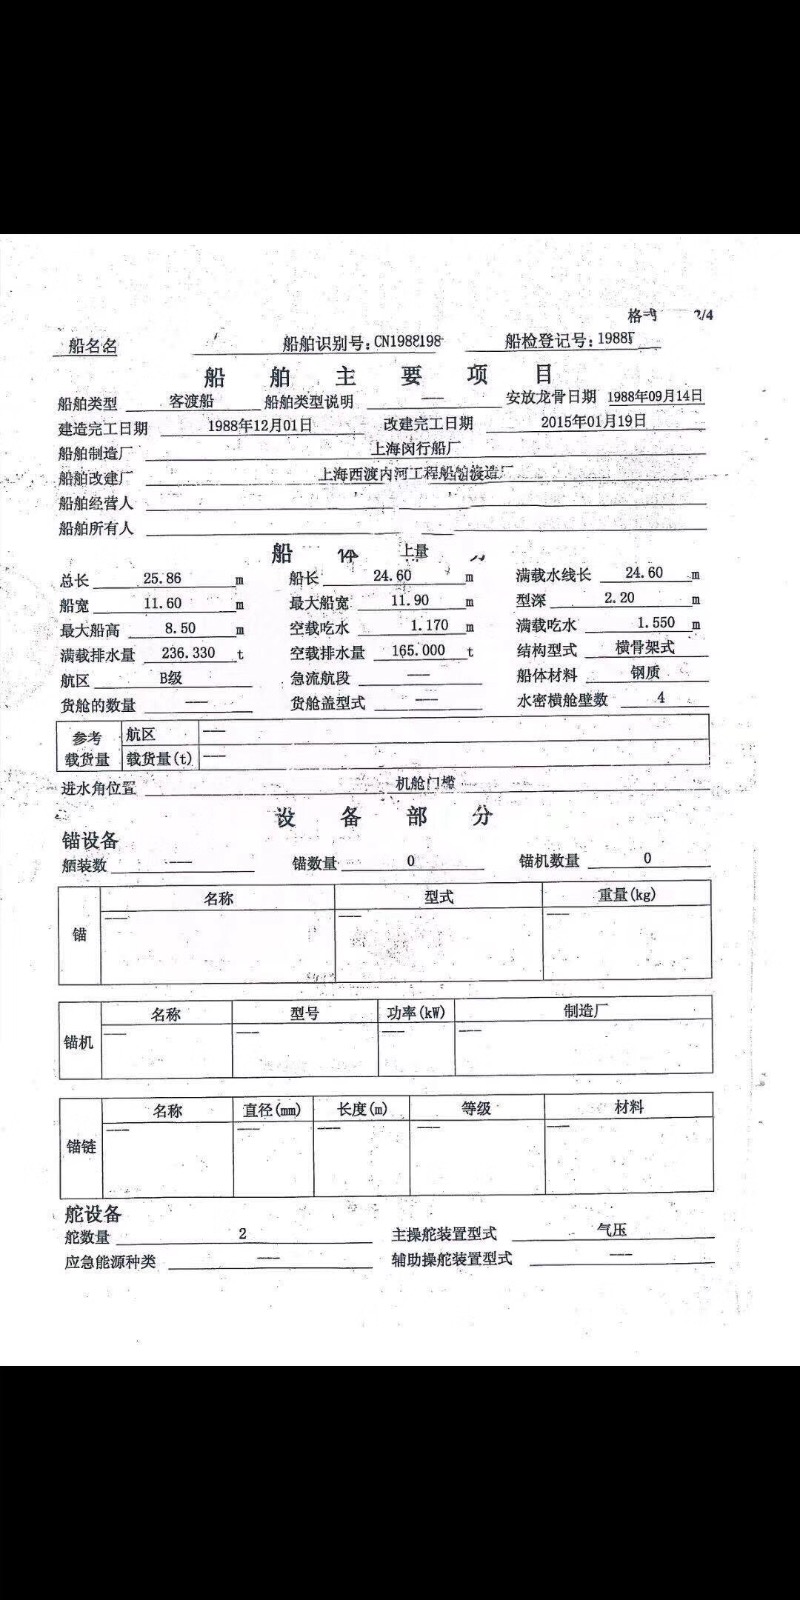 2/4
船名名 船舶识别号:CN1988198 船检登记号:1988
船舶主要项目
船舶类型 客渡船 船舶类型说明 —— 安放龙骨日期 1988年09月14日
建造完工日期 1988年12月01日 改建完工日期 2015年01月19日
船舶制造厂 上海闵行船厂
船舶改建厂 上海西渡内河工程船舶
船舶经营人
船舶所有人
船 体
总长 25.86 m 船长 24.60 m 满载水线长 24.60 m
船宽 11.60 m 最大船宽 11.90 m 型深 2.20 m
最大船高 8.50 m 空载吃水 1.170 m 满载吃水 1.550 m
满载排水量 236.330 t 空载排水量 165.000 t 结构型式 横骨架式
航区 B级 急流航段 —— 船体材料 钢质
货舱的数量 —— 货舱盖型式 —— 水密横舱壁数 4
参考载货量 航区 ——
载货量(t) ——
进水角位置 机舱门槛
设备部分
锚设备
舾装数 —— 锚数量 0 锚机数量 0
名称 型式 重量(kg)
锚 —— —— ——
名称 型号 功率(kW) 制造厂
锚机 —— —— —— ——
名称 直径(mm) 长度(m) 等级 材料
锚链 —— —— —— —— ——
舵设备
舵数量 2 主操舵装置型式 气压
应急能源种类 —— 辅助操舵装置型式 ——